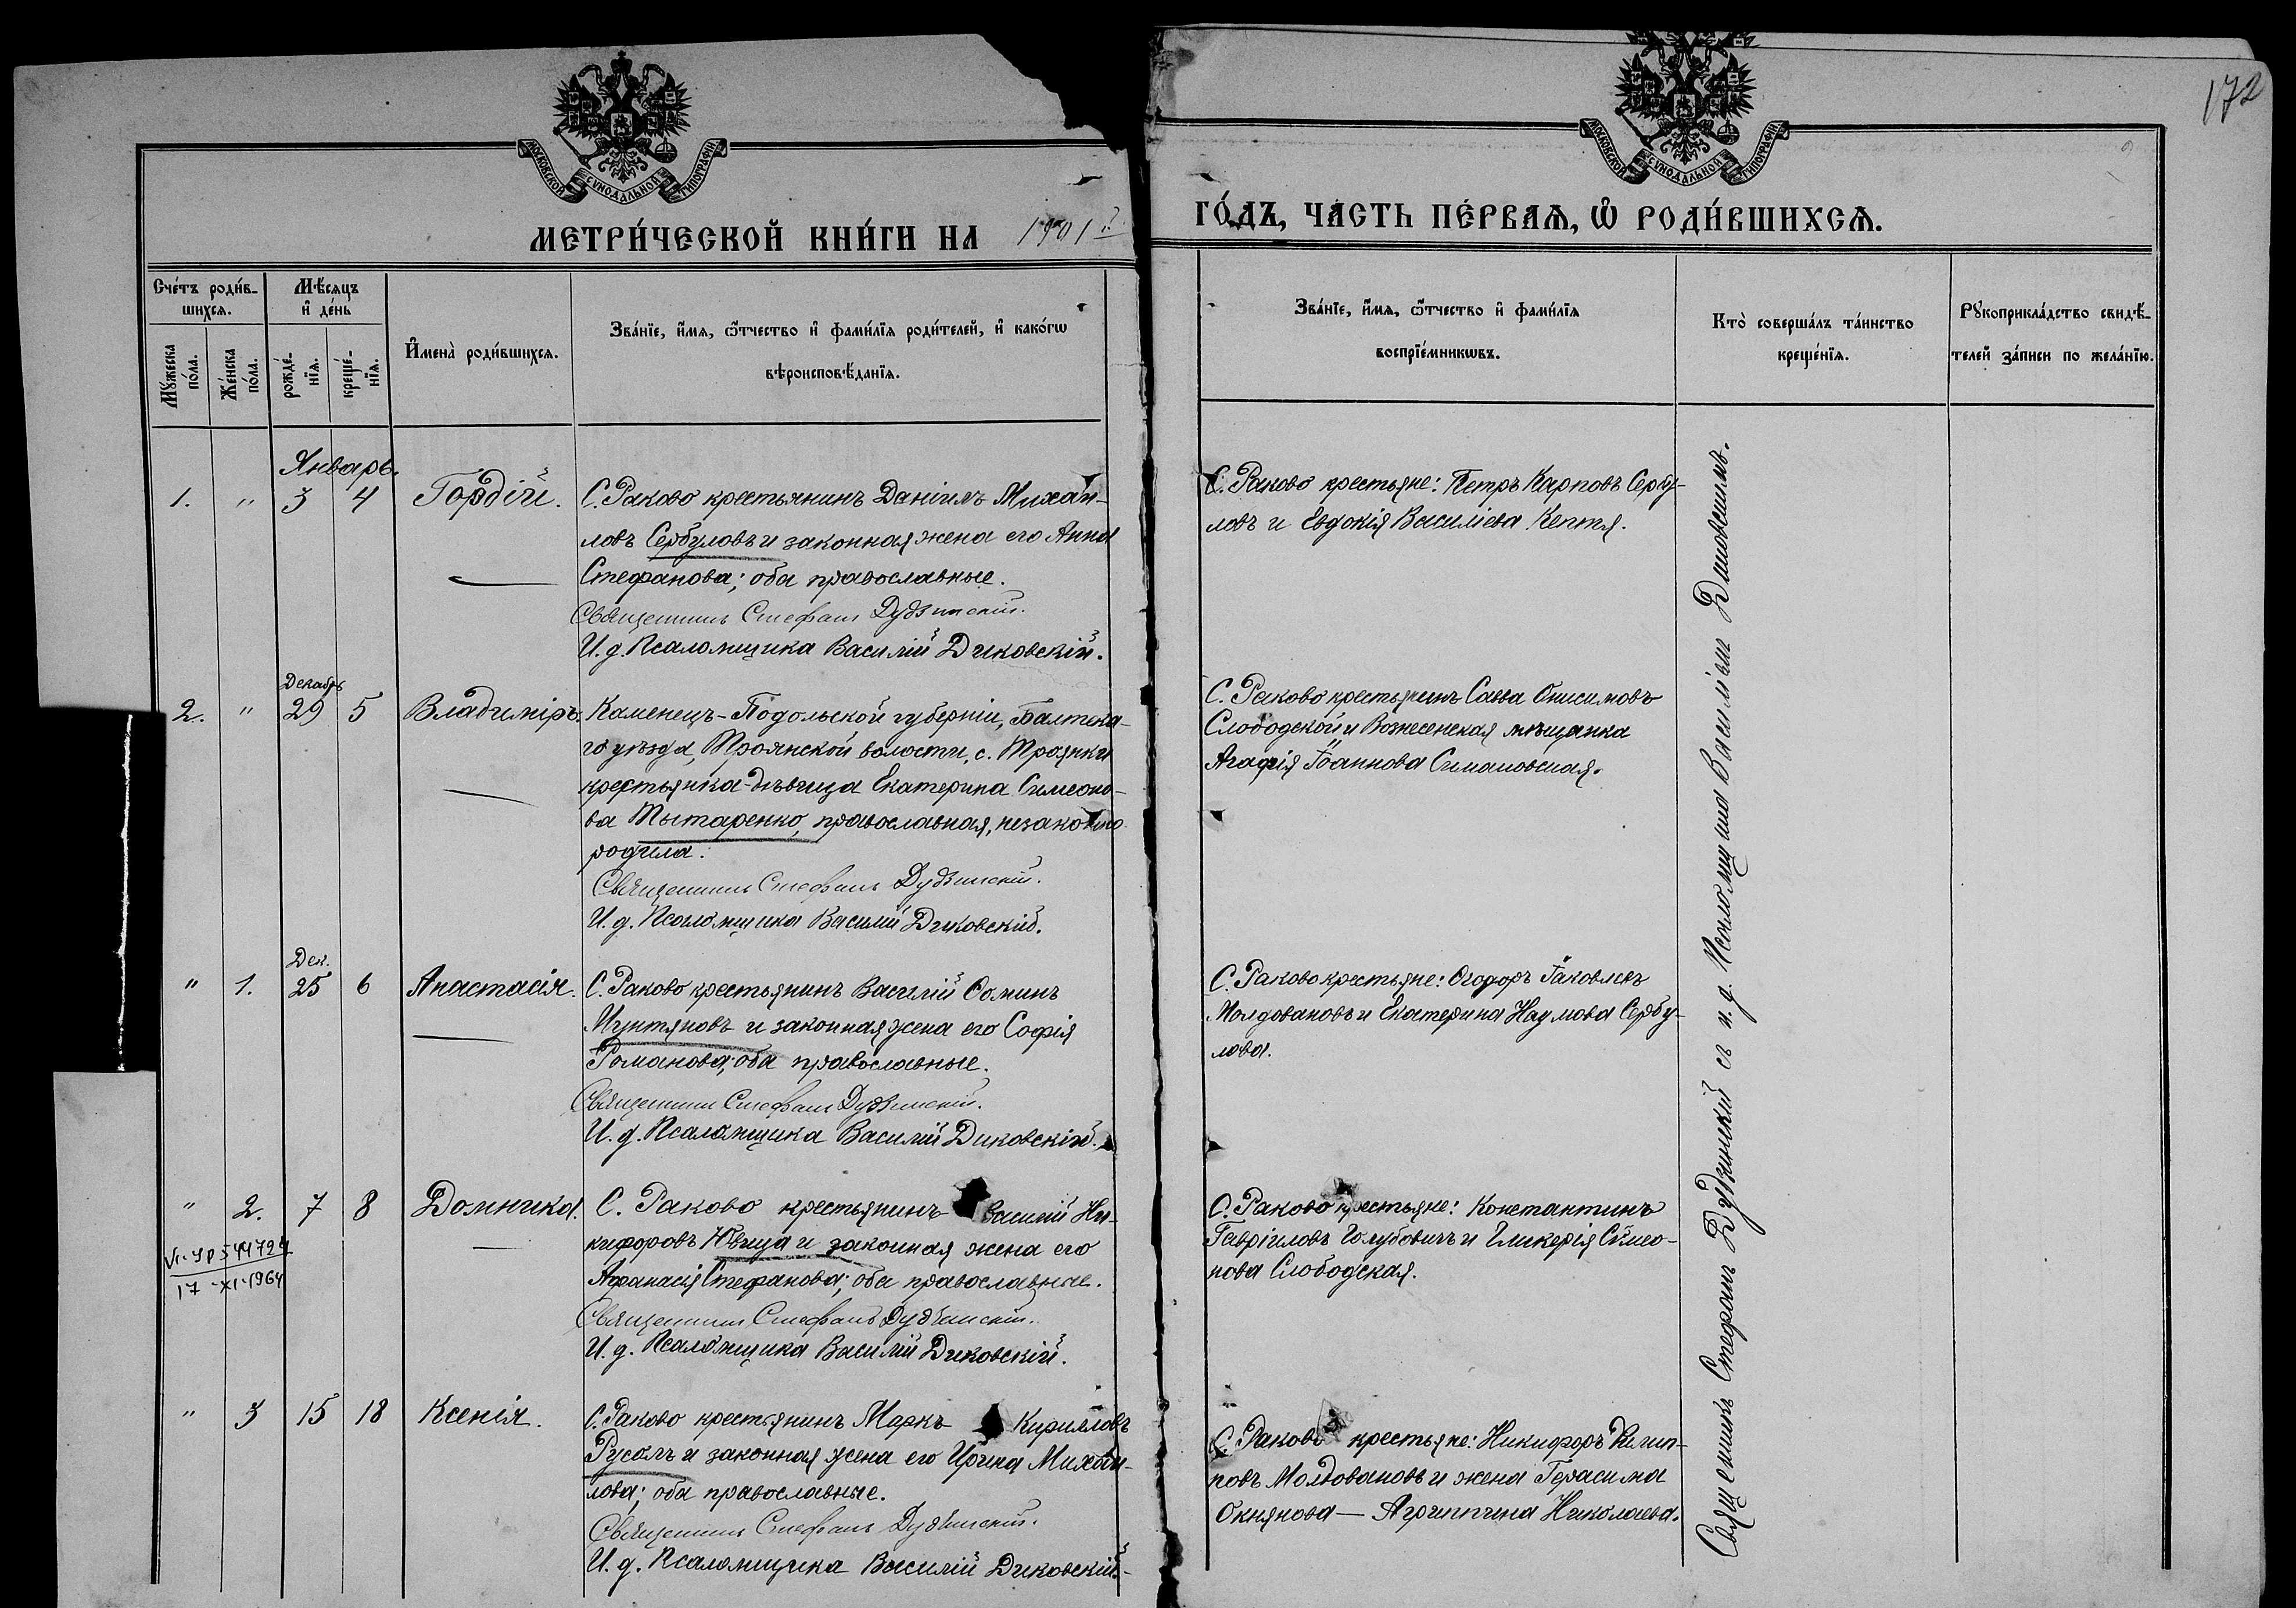 172
МОСКОВСКОЙ СѴНОДАЛЬНОЙ ТИПОГРАФІИ
МОСКОВСКОЙ СѴНОДАЛЬНОЙ ТИПОГРАФІИ
МЕТРИ́ЧЕСКОЙ КНИ́ГИ НА 1901 г
ГО́ДЪ, ЧА́СТЬ ПЕ́РВАѦ, Ѽ РОДИ́ВШИХСѦ.
Сче́тъ роди́в-
шихсѧ.
Мꙋжеска
по́ла.
Же́нска
по́ла.
Мѣ́сѧцъ
и҆ де́нь
рожде́-
нїѧ.
креще́-
нїѧ.
И҆мена̀ роди́вшихсѧ.
Зва́нїе, и҆́мѧ, ѻ҆́тчество и҆ фами́лїѧ роди́телей, и҆ како́гѡ
вѣроисповѣ́данїѧ.
Зва́нїе, и҆́мѧ, ѻ҆́тчество и҆ фами́лїѧ
воспрїе́мникѡвъ.
Кто̀ соверша́лъ та́инство
креще́нїѧ.
Рꙋкоприкла́дство свидѣ́-
телей за́писи по жела́нїю.
Январь.
1. " 3 4 Гордій.
С. Раково крестьянинъ Даніилъ Михаи-
ловъ Сербуловъ и законная жена его Анна
Стефанова; оба православные.
Священникъ Стефанъ Дудзинскій.
И. д. Псаломщика Василій Диковскій.
С. Раково крестьяне: Петръ Карповъ Сербу-
ловъ и Евдокія Василіева Кептя.
Декабрь
2. " 29 5 Владиміръ.
Каменецъ-Подольской губерніи, Балтска-
го уѣзда, Троянской волости, с. Троянки
крестьянка-дѣвица Екатерина Симеоно-
ва Тытаренко, православная, незаконно
родила.
Священникъ Стефанъ Дудзинскій.
И. д. Псаломщика Василій Диковскій.
С. Раково крестьянинъ Савва Онисимовъ
Слободской и Вознесенская мѣщанка
Агафія Іоаннова Симановская.
Дек.
" 1. 25 6 Анастасія.
С. Раково крестьянинъ Василій Ѳоминъ
Мунтяновъ и законная жена его Софія
Романова; оба православные.
Священникъ Стефанъ Дудзинскій.
И. д. Псаломщика Василій Диковскій.
С. Раково крестьяне: Ѳеодоръ Іаковлевъ
Молдовановъ и Екатерина Наумова Сербу-
лова.
" 2. 7 8 Домника.
С. Раково крестьянинъ Василій Ни-
кифоровъ Ювица и законная жена его
Афанасія Стефанова; оба православные.
Священникъ Стефанъ Дудзинскій.
И. д. Псаломщика Василій Диковскій.
544724
17-XI-1964
С. Раково крестьяне: Константинъ
Гавріиловъ Голубовичъ и Гликерія Симео-
нова Слободская.
" 3 15 18 Ксенія.
С. Раково крестьянинъ Маркъ Кирилловъ
Русолъ и законная жена его Ирина Михаи-
лова; оба православные.
Священникъ Стефанъ Дудзинскій.
И. д. Псаломщика Василій Диковскій.
С. Раково крестьяне: Никифоръ Филип-
повъ Молдовановъ и жена Герасима
Окнянова — Агриппина Николаева.
Священникъ Стефанъ Дудзинскій съ и. д. Псаломщика Василіемъ Диковскимъ.